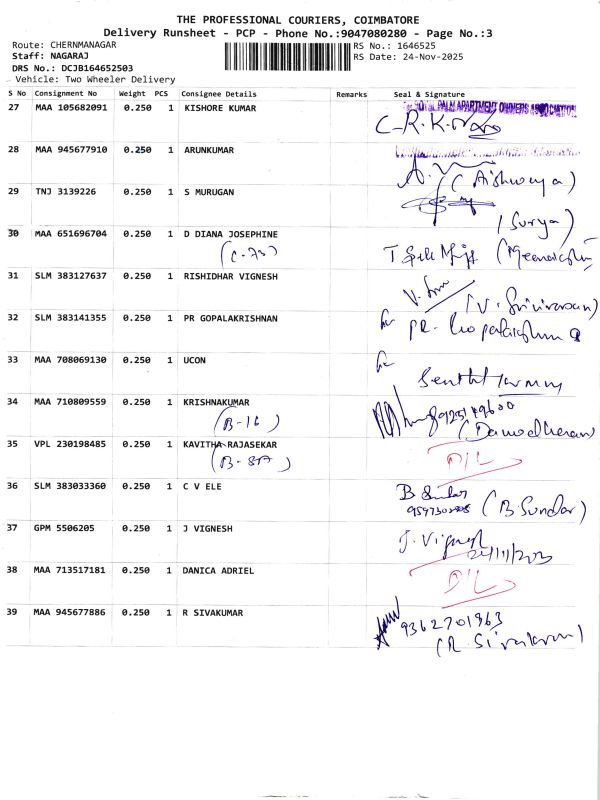 THE PROFESSIONAL COURIERS, COIMBATORE
Delivery Runsheet - PCP - Phone No.:9047080280 - Page No.:3
Route: CHERNMANAGAR RS No.: 1646525
Staff: NAGARAJ RS Date: 24-Nov-2025
DRS No.: DCJB164652503
Vehicle: Two Wheeler Delivery
S No Consignment No Weight PCS Consignee Details Remarks Seal & Signature
27 MAA 105682091 0.250 1 KISHORE KUMAR PALM APARTMENT OWNERS ASSOCIATION
C.R.K.
28 MAA 945677910 0.250 1 ARUNKUMAR
(Aishwarya)
29 TNJ 3139226 0.250 1 S MURUGAN
(Surya)
30 MAA 651696704 0.250 1 D DIANA JOSEPHINE
(C-73)
31 SLM 383127637 0.250 1 RISHIDHAR VIGNESH
(V. Srinivasan)
32 SLM 383141355 0.250 1 PR GOPALAKRISHNAN for
PR.
33 MAA 708069130 0.250 1 UCON for
34 MAA 710809559 0.250 1 KRISHNAKUMAR
(B-16) (Damodharan)
35 VPL 230198485 0.250 1 KAVITHA RAJASEKAR D/L
(B-8A)
36 SLM 383033360 0.250 1 C V ELE
(B. Sundar)
37 GPM 5506205 0.250 1 J VIGNESH J. Vignesh
38 MAA 713517181 0.250 1 DANICA ADRIEL D/L
39 MAA 945677886 0.250 1 R SIVAKUMAR 9362701963
(R. Sivakumar)